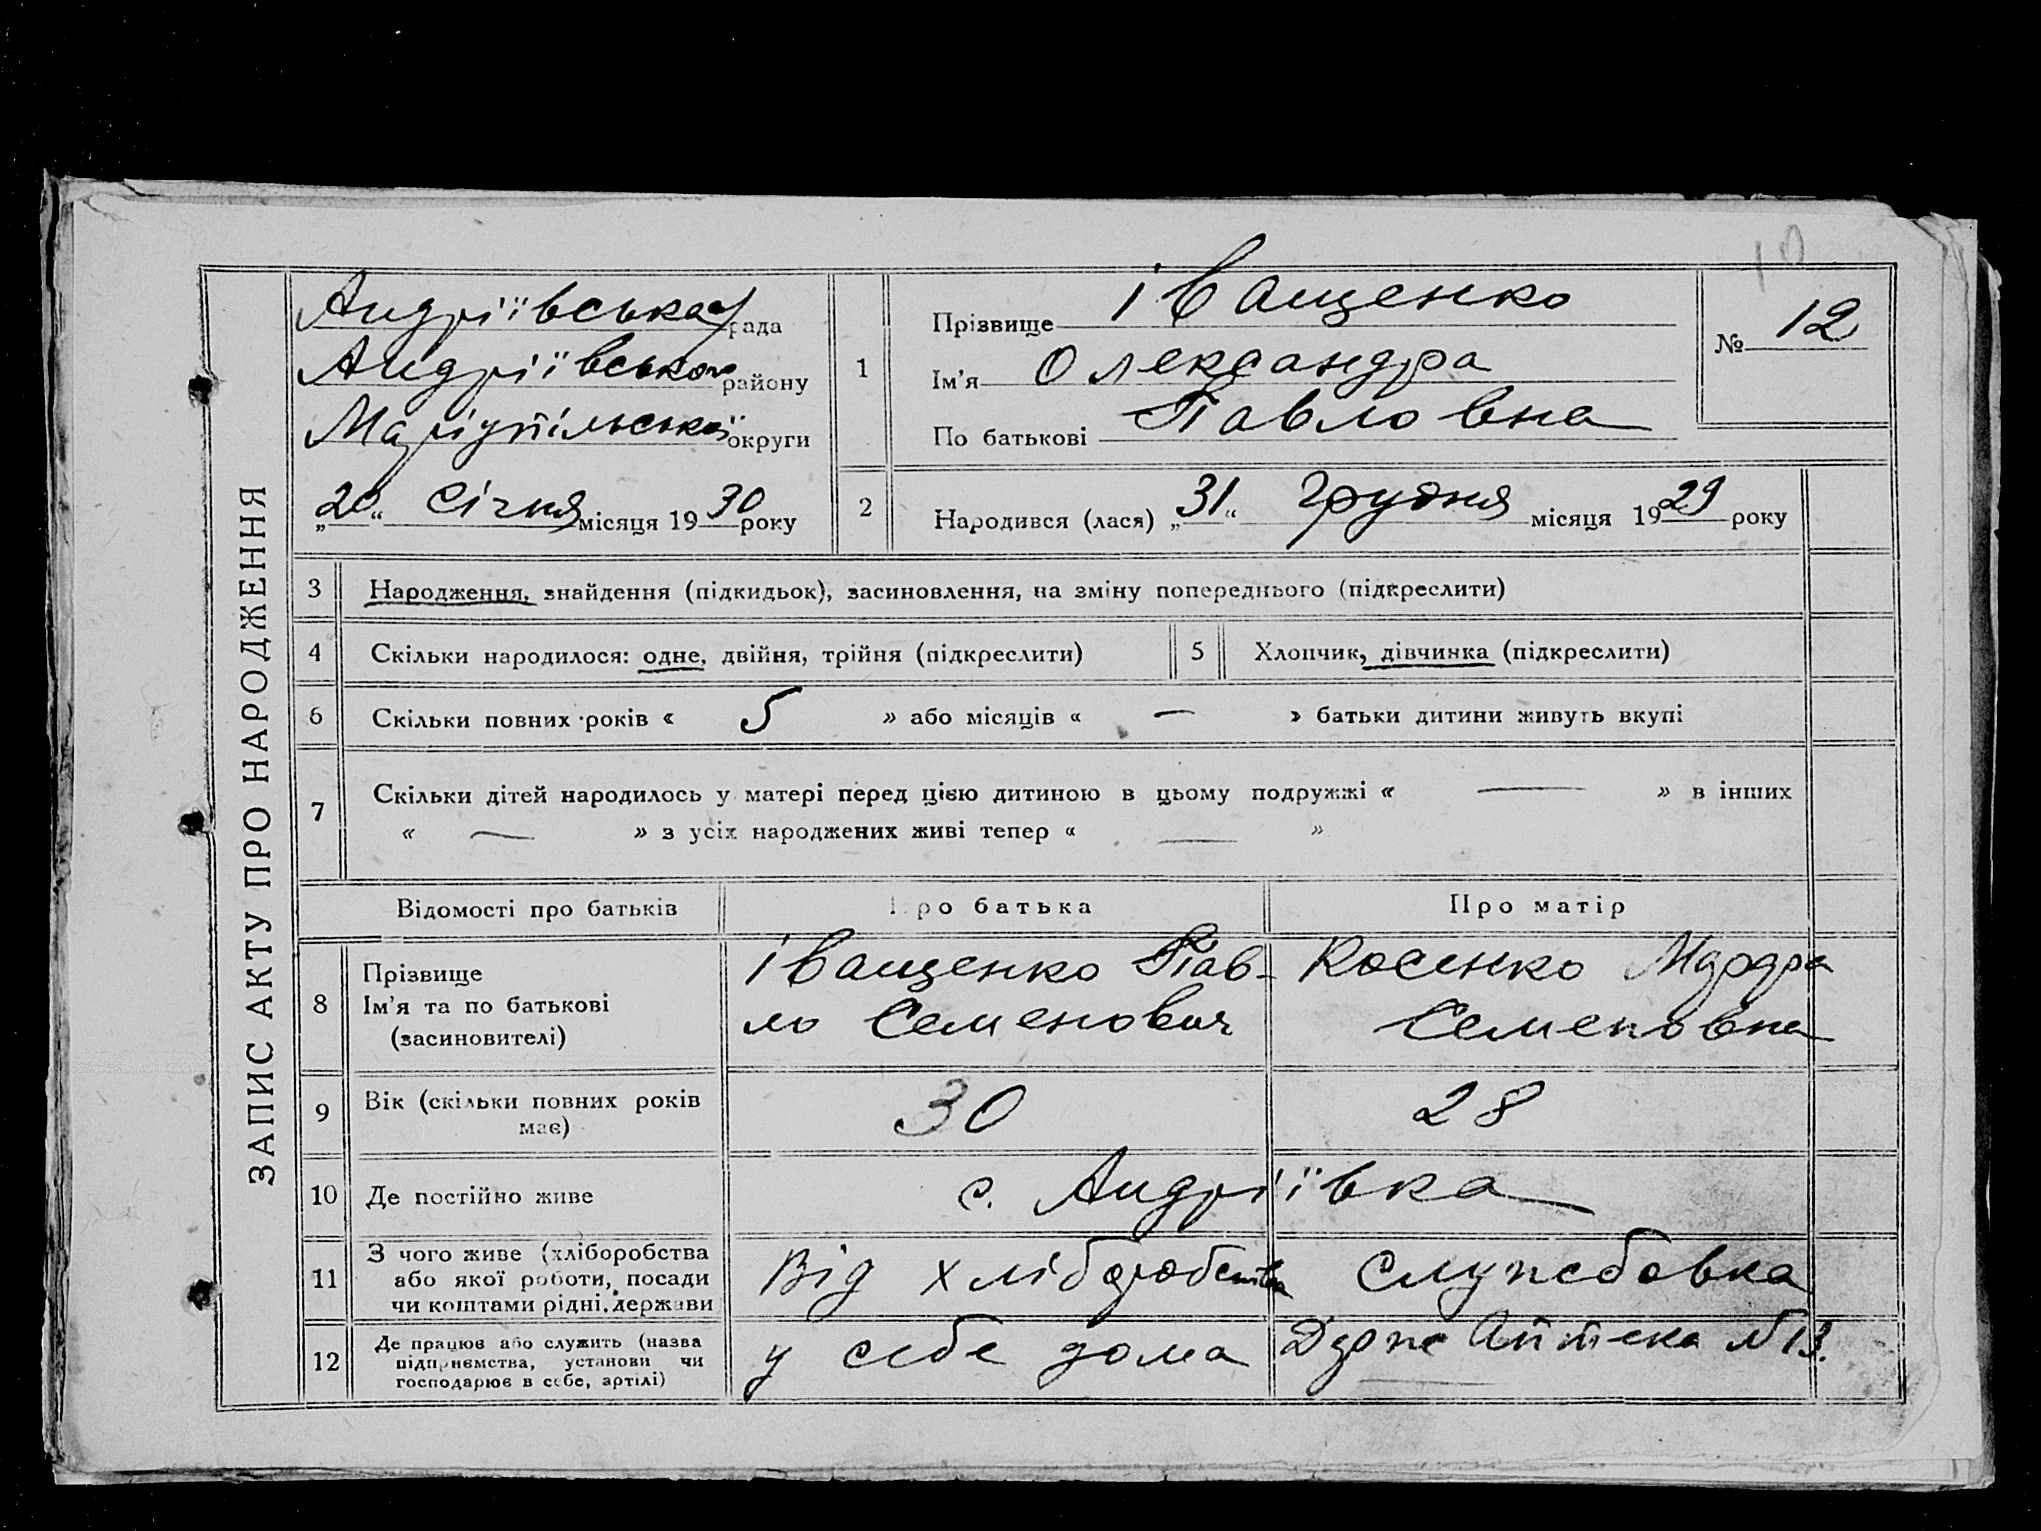 10
ЗАПИС АКТУ ПРО НАРОДЖЕННЯ
Андріївська рада
Андріївського району
Маріупільської округи
„20“ Січня місяця 1930 року
1
Прізвище Іващенко
Ім'я Олександра
По батькові Павловна
№ 12
2
Народився (лася) „31“ Грудня місяця 1929 року
3 Народження, знайдення (підкидьок), засиновлення, на зміну попереднього (підкреслити)
4 Скільки народилося: одне, двійня, трійня (підкреслити) 5 Хлопчик, дівчинка (підкреслити)
6 Скільки повних років « 5 » або місяців « — » батьки дитини живуть вкупі
7 Скільки дітей народилось у матері перед цією дитиною в цьому подружжі « — » в інших
« — » з усіх народжених живі тепер « — »
Відомості про батьків Про батька Про матір
8 Прізвище
Ім'я та по батькові
(засиновителі)
Іващенко Пав-
ло Семенович
Косенко
Семеновна
9 Вік (скільки повних років
має)
30 28
10 Де постійно живе с. Андріївка
11 З чого живе (хліборобства
або якої роботи, посади
чи коштами рідні, держави
Від хліборобства Службовка
12 Де працює або служить (назва
підприємства, установи чи
господарює в себе, артілі)
у себе дома Держ Аптека №13.